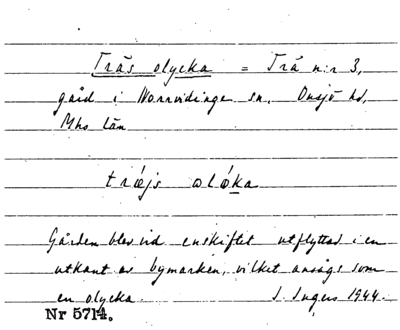 Trås olycka = Trå n:r 3,
gård i Norrvidinge sn, Onsjö hd,
Mhs län
tråjs olỏka
Gården blev vid enskiftet utflyttad i en
utkant av bymarken, vilket ansågs som
en olycka. I. Ingers 1944.
Nr 5714.